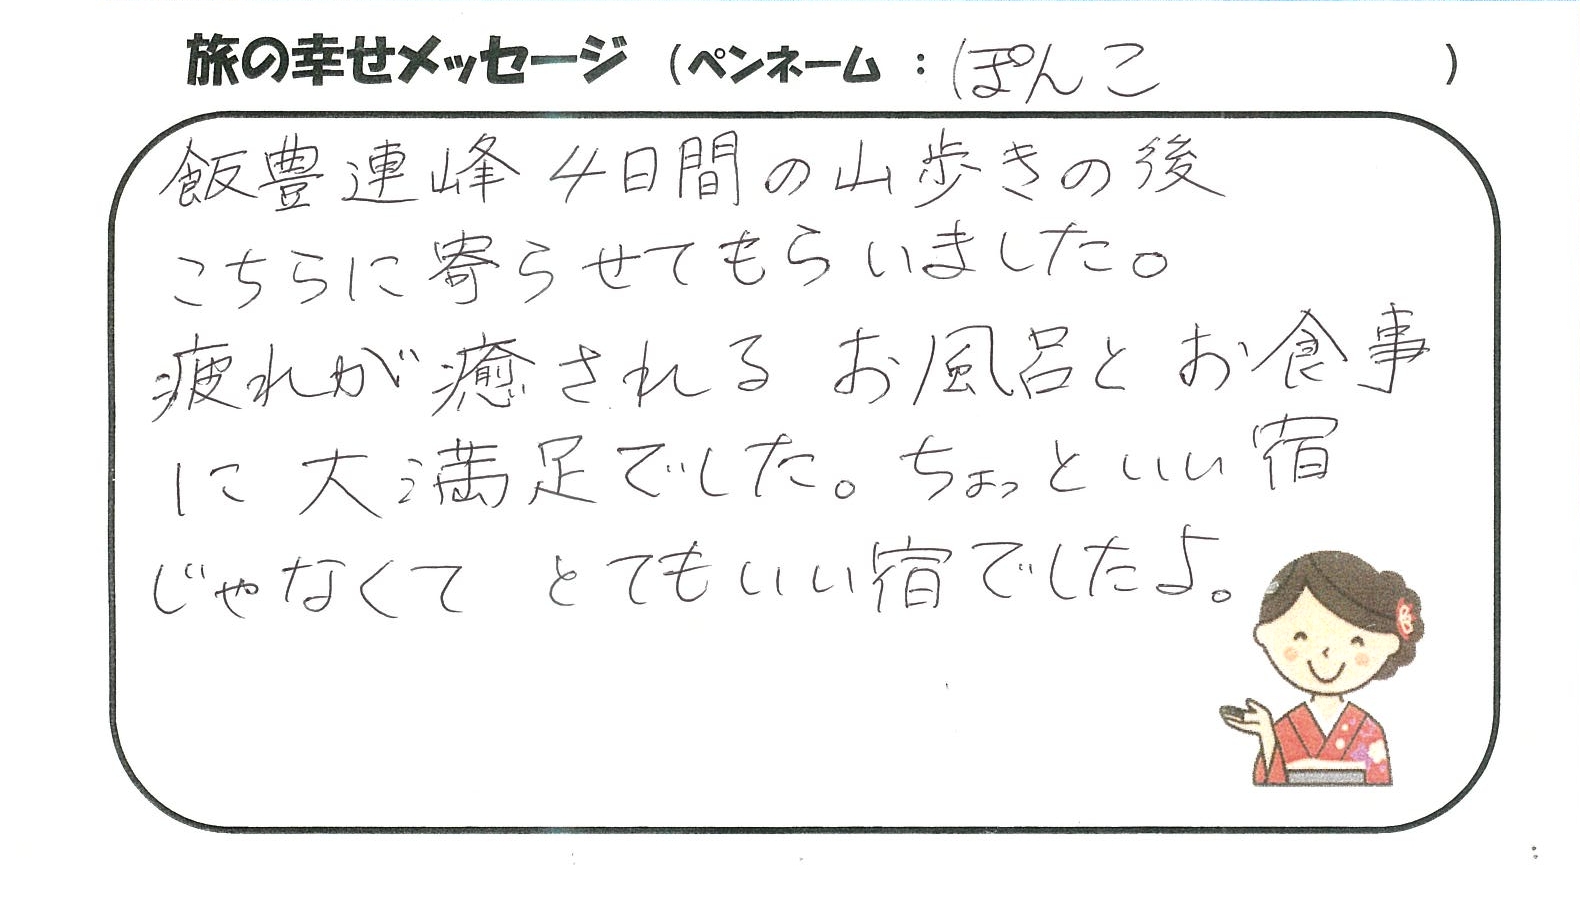 旅の幸せメッセージ （ペンネーム ： ぽんこ ）
飯豊連峰 4日間の山歩きの後
こちらに寄らせてもらいました。
疲れが癒される お風呂と お食事
に 大満足でした。ちょっといい宿
じゃなくて とてもいい宿でしたよ。